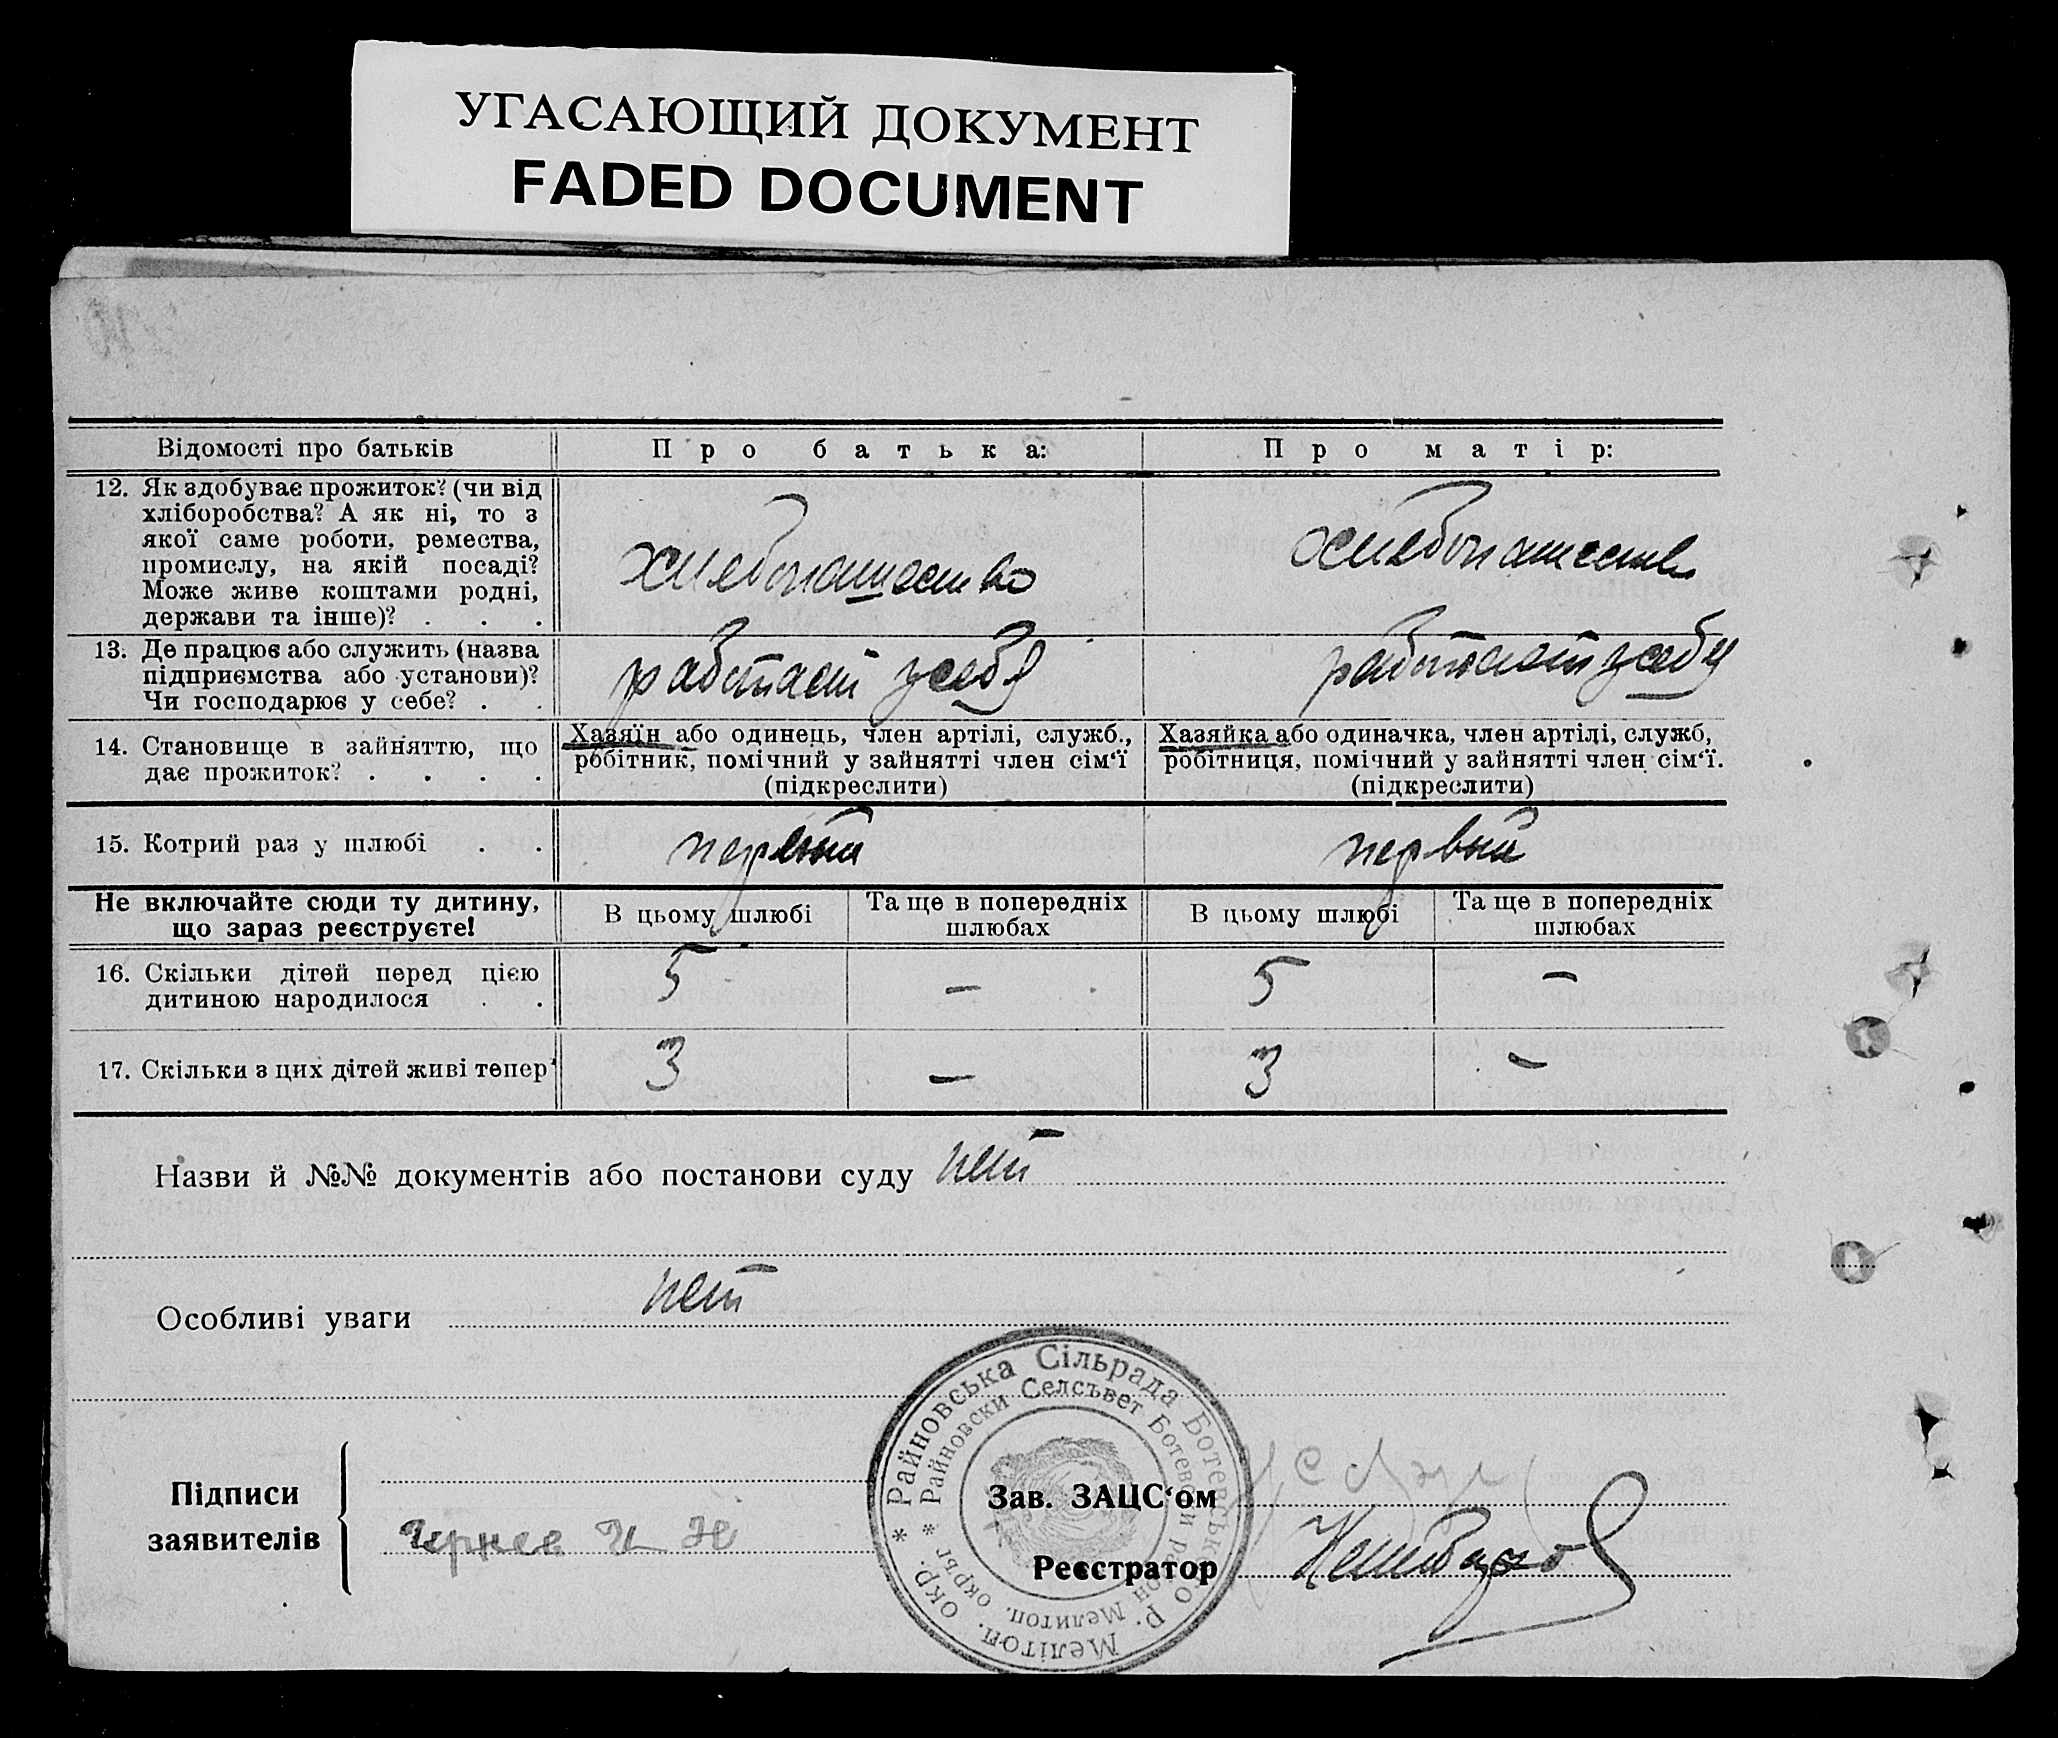 УГАСАЮЩИЙ ДОКУМЕНТ
FADED DOCUMENT
Відомості про батьків
Про батька:
Про матір:
12. Як здобуває прожиток? (чи від
хліборобства? А як ні, то з
якої саме роботи, ремества,
промислу, на якій посаді?
Може живе коштами родні,
держави та інше)? . . .
хлебопашество
хлебопашество
13. Де працює або служить (назва
підприємства або установи)?
Чи господарює у себе? . .
работает у себя
работает у себя
14. Становище в зайняттю, що
дає прожиток? . . . .
Хазяїн або одинець, член артілі, служб.,
робітник, помічний у зайнятті член сім‘ї
(підкреслити)
Хазяйка або одиначка, член артілі, служб,
робітниця, помічний у зайнятті член сім‘ї.
(підкреслити)
15. Котрий раз у шлюбі . .
первый
первый
Не включайте сюди ту дитину,
що зараз реєструєте!
В цьому шлюбі
Та ще в попередніх
шлюбах
В цьому шлюбі
Та ще в попередніх
шлюбах
16. Скільки дітей перед цією
дитиною народилося . .
5
—
5
—
17. Скільки з цих дітей живі тепер?
3
—
3
—
Назви й №№ документів або постанови суду нет
Особливі уваги нет
Підписи
заявителів
Чернев И Н
Зав. ЗАЦС‘ом
Реєстратор
* Райновська Сільрада Ботевського р. Мелітоп. окр.
* Райновски Селсъвет Ботевски район Мелитоп. окръг